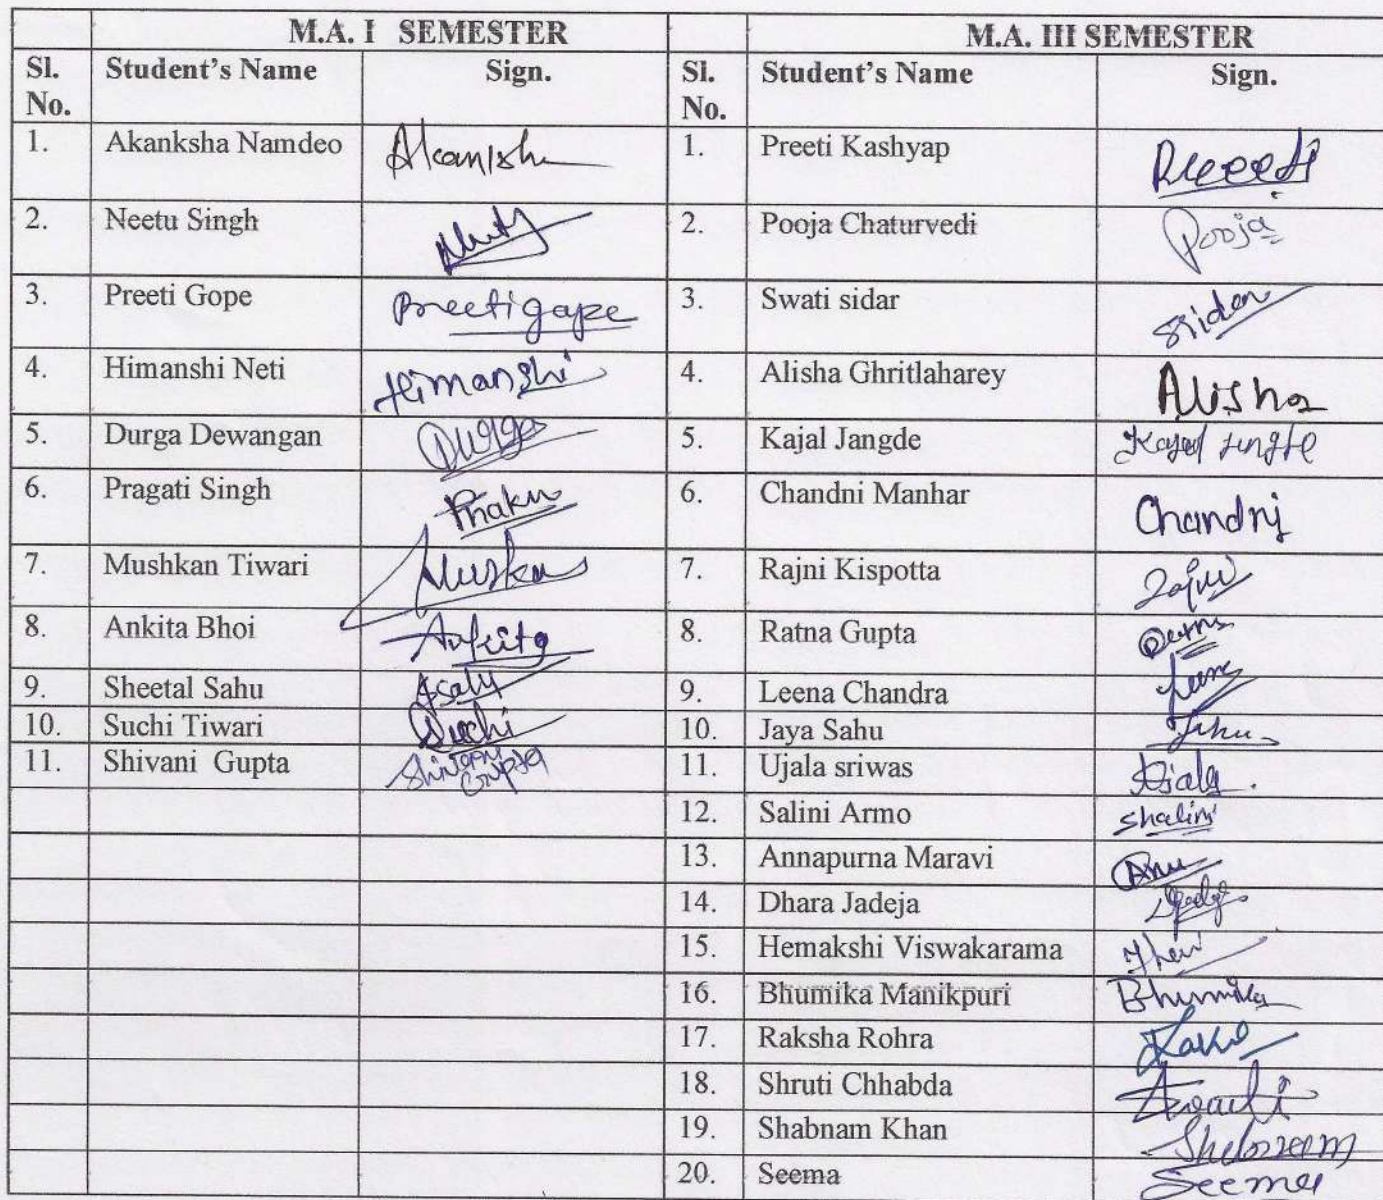 M.A. I SEMESTER M.A. III SEMESTER
Sl. No. Student's Name Sign. Sl. No. Student's Name Sign.
1. Akanksha Namdeo 1. Preeti Kashyap Preeti
2. Neetu Singh 2. Pooja Chaturvedi Pooja
3. Preeti Gope Preeti gope 3. Swati sidar Sidar
4. Himanshi Neti Himanshi 4. Alisha Ghritlaharey Alisha
5. Durga Dewangan Durga 5. Kajal Jangde Kajal
6. Pragati Singh 6. Chandni Manhar Chandni
7. Mushkan Tiwari Muskan 7. Rajni Kispotta Rajni
8. Ankita Bhoi Ankita 8. Ratna Gupta Ratna
9. Sheetal Sahu 9. Leena Chandra
10. Suchi Tiwari Suchi 10. Jaya Sahu
11. Shivani Gupta Shivani Gupta 11. Ujala sriwas Ujala
12. Salini Armo Shalini
13. Annapurna Maravi Anu
14. Dhara Jadeja
15. Hemakshi Viswakarama
16. Bhumika Manikpuri Bhumika
17. Raksha Rohra
18. Shruti Chhabda
19. Shabnam Khan
20. Seema Seema